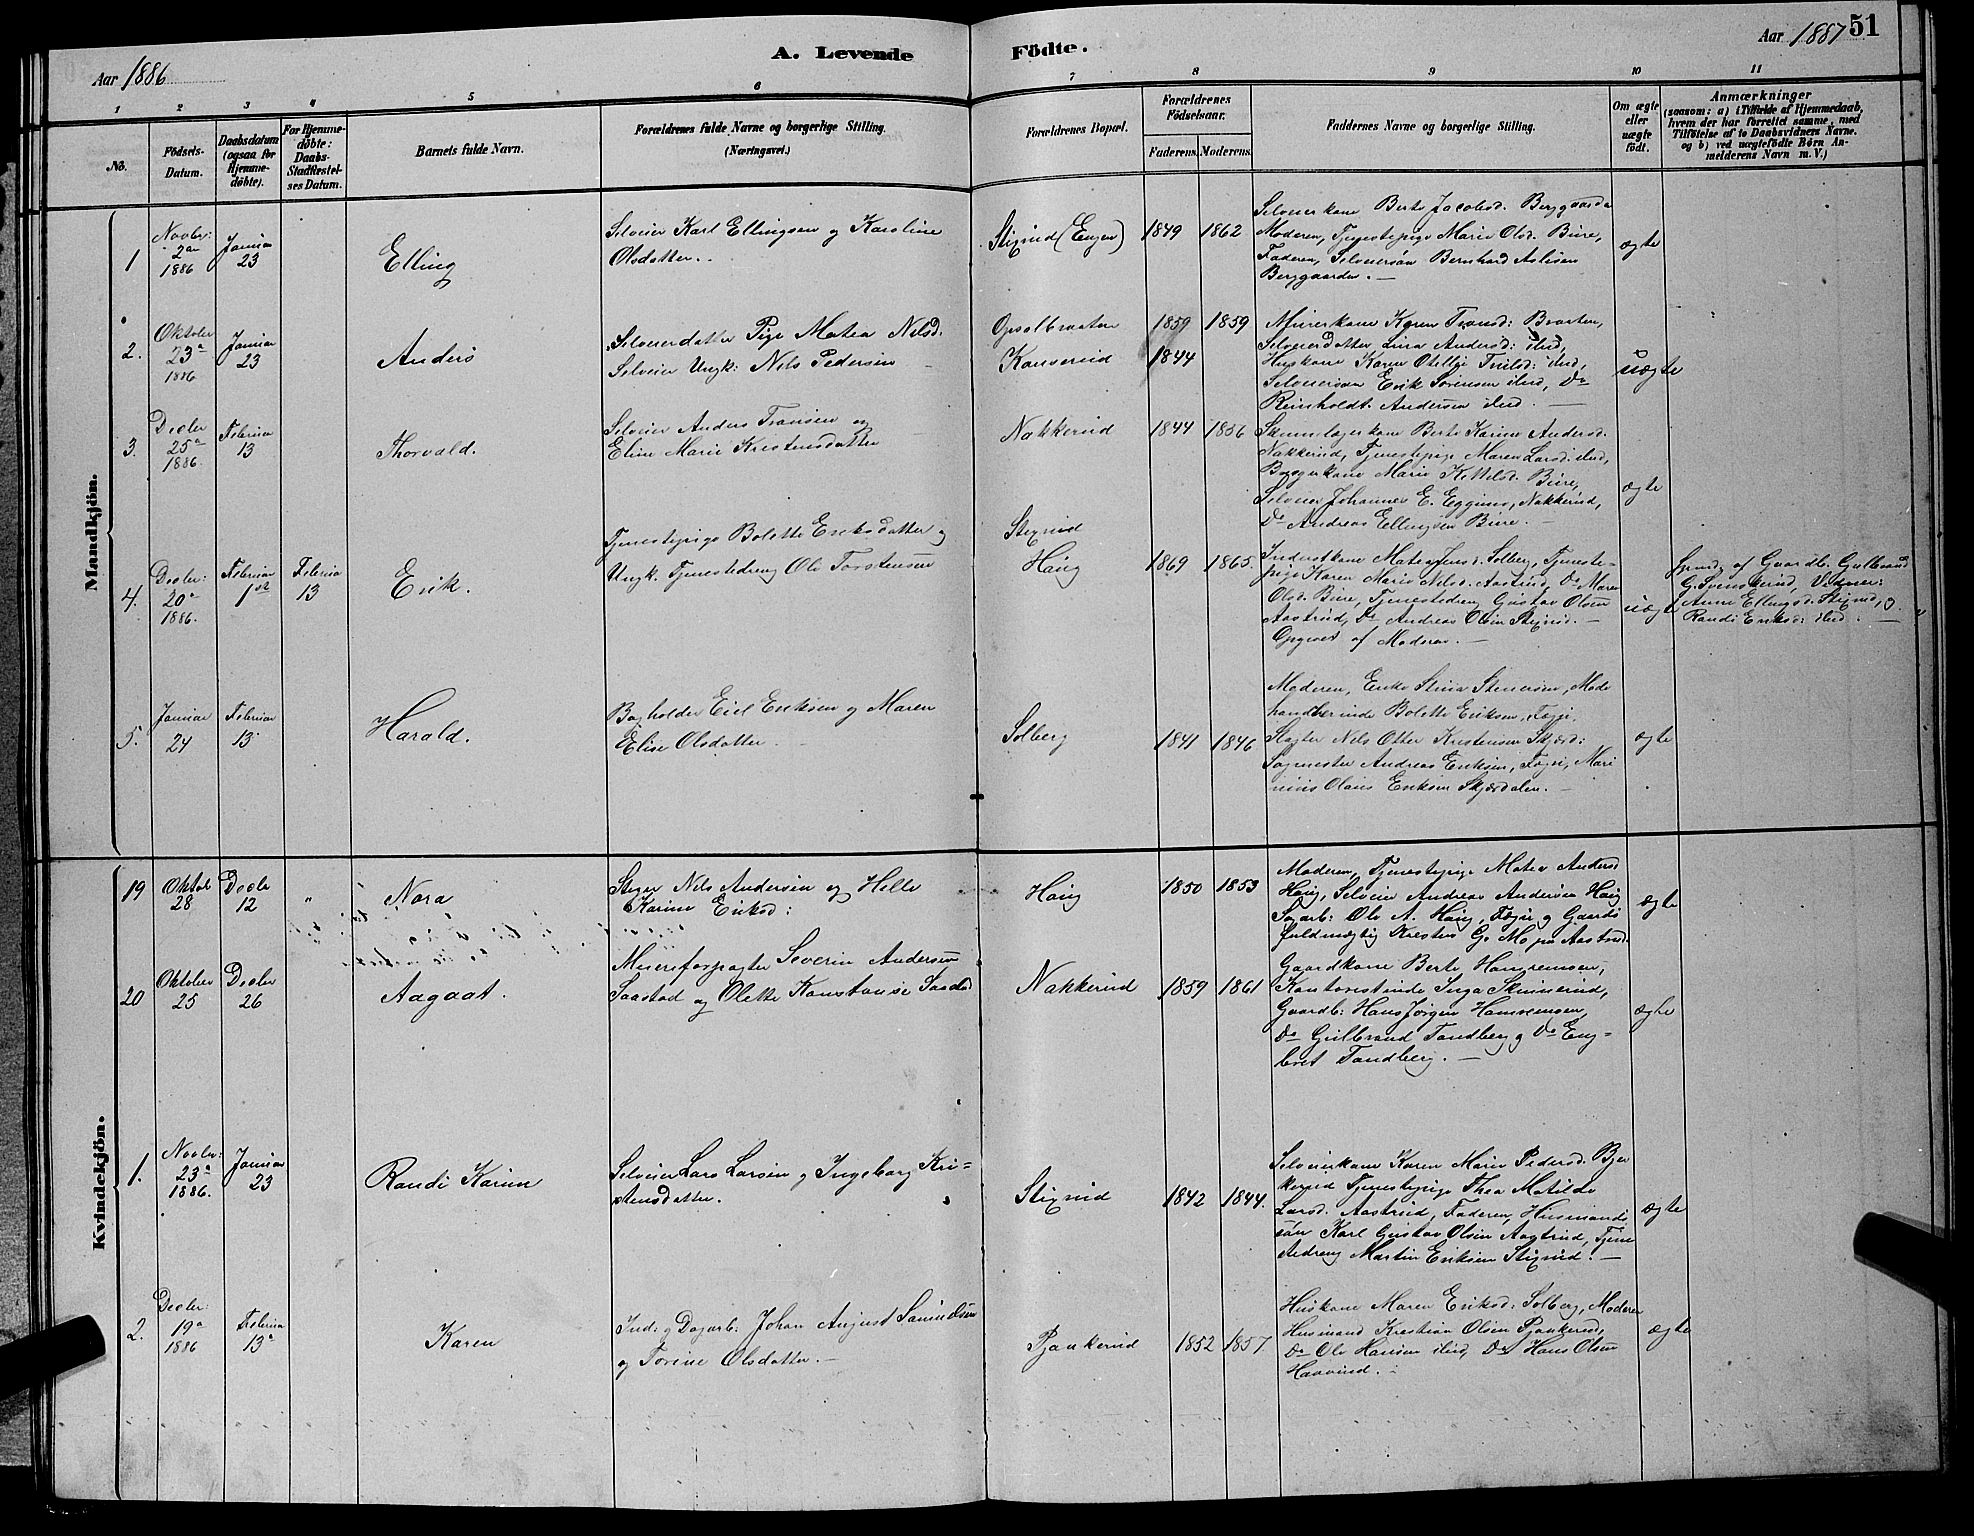 Aar 1886
A. Levende
Fødte.
Aar 1887
51
1
2
3
4
5
6
7
8
9
10
11
No.
Födsels-
Datum.
Daabsdatum
(ogsaa for
Hjemme-
döbte).
For Hjemme-
döbte:
Daabs-
Stadfæstel-
ses Datum.
Barnets fulde Navn.
Forældrenes fulde Navne og borgerlige Stilling
(Næringsvei.)
Forældrenes Bopæl.
Forældrenes
Födselsaar.
Faderens.
Moderens.
Faddernes Navne og borgerlige Stilling.
Om ægte
eller
uægte
födt.
Anmærkninger
(saasom: a) i Tilfælde af Hjemmedaab,
hvem der har forrettet samme, med
Tilföielse af to Daabsvidners Navne.
og b) ved uægtefödte Börn An-
melderens Navn m. V.)
Mandkjön.
1
Novbr:
2den
1886
Januar
23
Elling
Selveier Karl Ellingsen og Karoline
Olsdatter.
Stixrud (Engen)
1849
1862
Selveierkone Berte Jacobsd. Berggaarde
Moderen, Tjenestepige Marie Olsd. Bure,
Faderen, Selveiersøn Bernhard
Berggaarden. —
ægte
2.
Oktober
23a
1886
Januar
23
Anders
Selveierdatter Pige Matea Nilsd.
Selveier Ungk: Nils Pedersen
Opsalbraaten
Kanverud
1859
1859
1844
Murerkone Karen
Selveierdatter Lina Andersd: ibid,
Huskone Karen Otillie ibid,
Selveiersøn Erik Sørensen ibid, Do
Reinholdt Andersen ibid. —
uægte
3.
Decbr
25a
1886.
Februar
13
Thorvald.
Selveier Anders Fransen og
Eline Marie Kristensdatter
Nakkerud
1844
1856
Berte Karine Andersd.
Nakkerud, Tjenestepige Maren Larsd. ibid,
Marie Bure,
Selveier Johannes E. Nakkerud,
Do Andreas Ellingsen Bure. —
ægte
4.
Decbr:
20a
1886.
Februar
1ste
Februar
13
Erik.
Tjenestepige Bolette Eriksdatter og
Ungk. Tjenestedreng Ole Torstensen
Stixrud
Haug
1869
1865.
Inderstkone Matea Jensd. Solberg, Tjeneste-
pige Karen Marie Nilsd. Aastrud, Do Maren
Olsd. Bure, Tjenestedreng Gustav Olsen
Aastrud, Do Andreas Olsen Stixrud. —
Opgivet af Moderen. —
uægte
af Gaardb. Gulbrand
G. Svenskerud, Vidner:
Anne Ellingsd. Stixrud, og
Randi Eriksd: ibid. —
5.
Januar
24
Februar
13
Harald.
Bogholder Eiel Eriksen og Maren
Elise Olsdatter. —
Solberg
1841
1846
Moderen, Enke Stina Stenersen, Mode
handlerinde Bolette Eriksen, Fagri,
Slagter Nils Otter Kristensen Skjærd:
Sagmester Andreas Eriksen, Fagri, Mari
nius Olaus Eriksen Skjærdalen. —
ægte
Kvindekjön.
19
Oktob
28
Decbr
12
"
Nora
Stiger Nils Andersen og Helle
Karine Eriksd:
Haug
1850
1853
Moderen, Tjenestepige Matea Andersd
Haug, Selveier Andreas Andersen Haug
Sagarb: Ole A. Haug, og Gaards
fuldmægtig Kristen G. Aastrud.
ægte
20
Oktober
25
Decbr
26
Aagaat.
Meieriforpagter Severin Andersen
Saastad og Olette Konstanse
Nakkerud
1859
1861
Gaardkone Berte Hansremsen,
Inga Skinnerud,
Gaardb: Hans Jørgen Hansremsen,
Do Gulbrand Tandberg og Do Eng-
bret Tandberg. —
ægte
1.
Novbr:
23a
1886.
Januar
23
Randi Karine
Selveier Lars Larsen og Ingeborg Kri-
stensdatter.
Stixrud
1842
1844.
Selveierkone Karen Marie Pedersd. Bjer
kerud Tjenestepige Thea Matilde
Larsd. Aastrud, Faderen, Husmands
søn Karl Gustav Olsen Aastrud, Tjene
stedreng Martin Eriksen Stixrud. —
ægte
2.
Decbr:
19a
1886
Februar
13a
Karen
Ind: og Dagarb: Johan August Samuelsen
og Torine Olsdatter. —
Pjaakerud
1852
1857
Huskone Maren Eriksd: Solberg, Moderen
Husmand Kristian Olsen Pjaakerud,
Do Ole Hansen ibid, Do Hans Olsen
Haverud. —
ægte